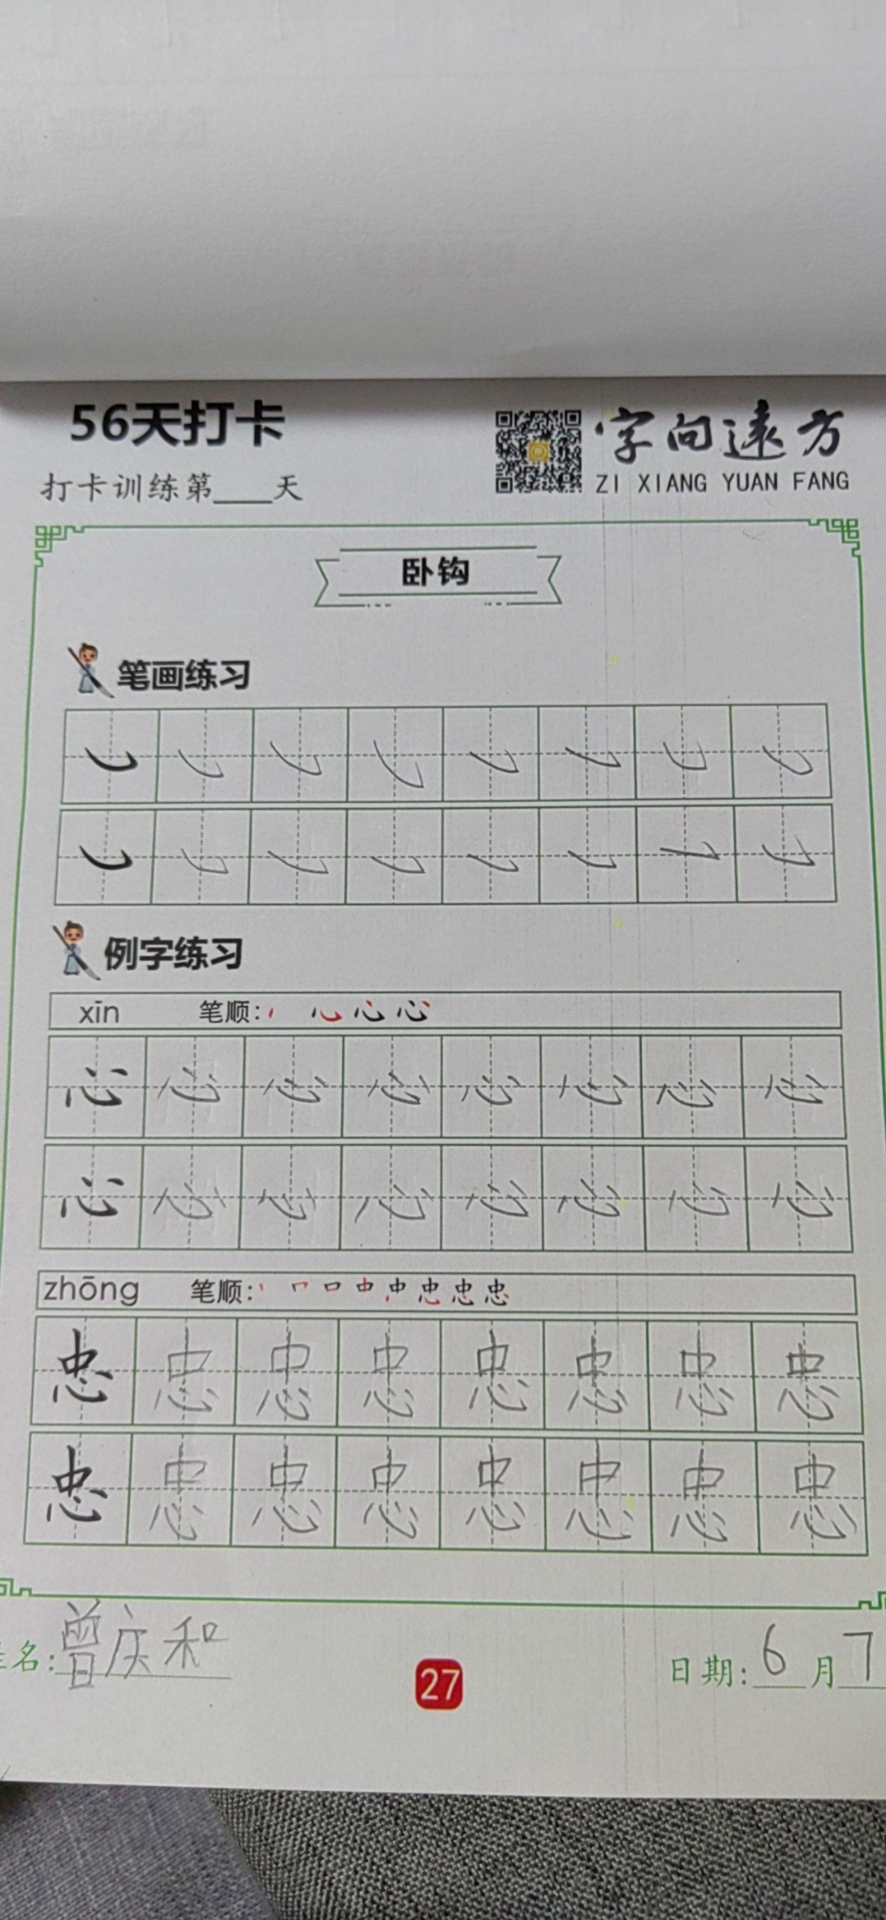 56天打卡
打卡训练第___天
字向远方
ZI XIANG YUAN FANG
卧钩
笔画练习
㇃ ㇃ ㇃ ㇃ ㇃ ㇃ ㇃ ㇃
㇃ ㇃ ㇃ ㇃ ㇃ ㇃ ㇃ ㇃
例字练习
xīn 笔顺:
心 心 心 心 心 心 心 心
心 心 心 心 心 心 心 心
zhōng 笔顺:
忠 忠 忠 忠 忠 忠 忠 忠
忠 忠 忠 忠 忠 忠 忠 忠
姓名:曾庆和
27
日期:6月7